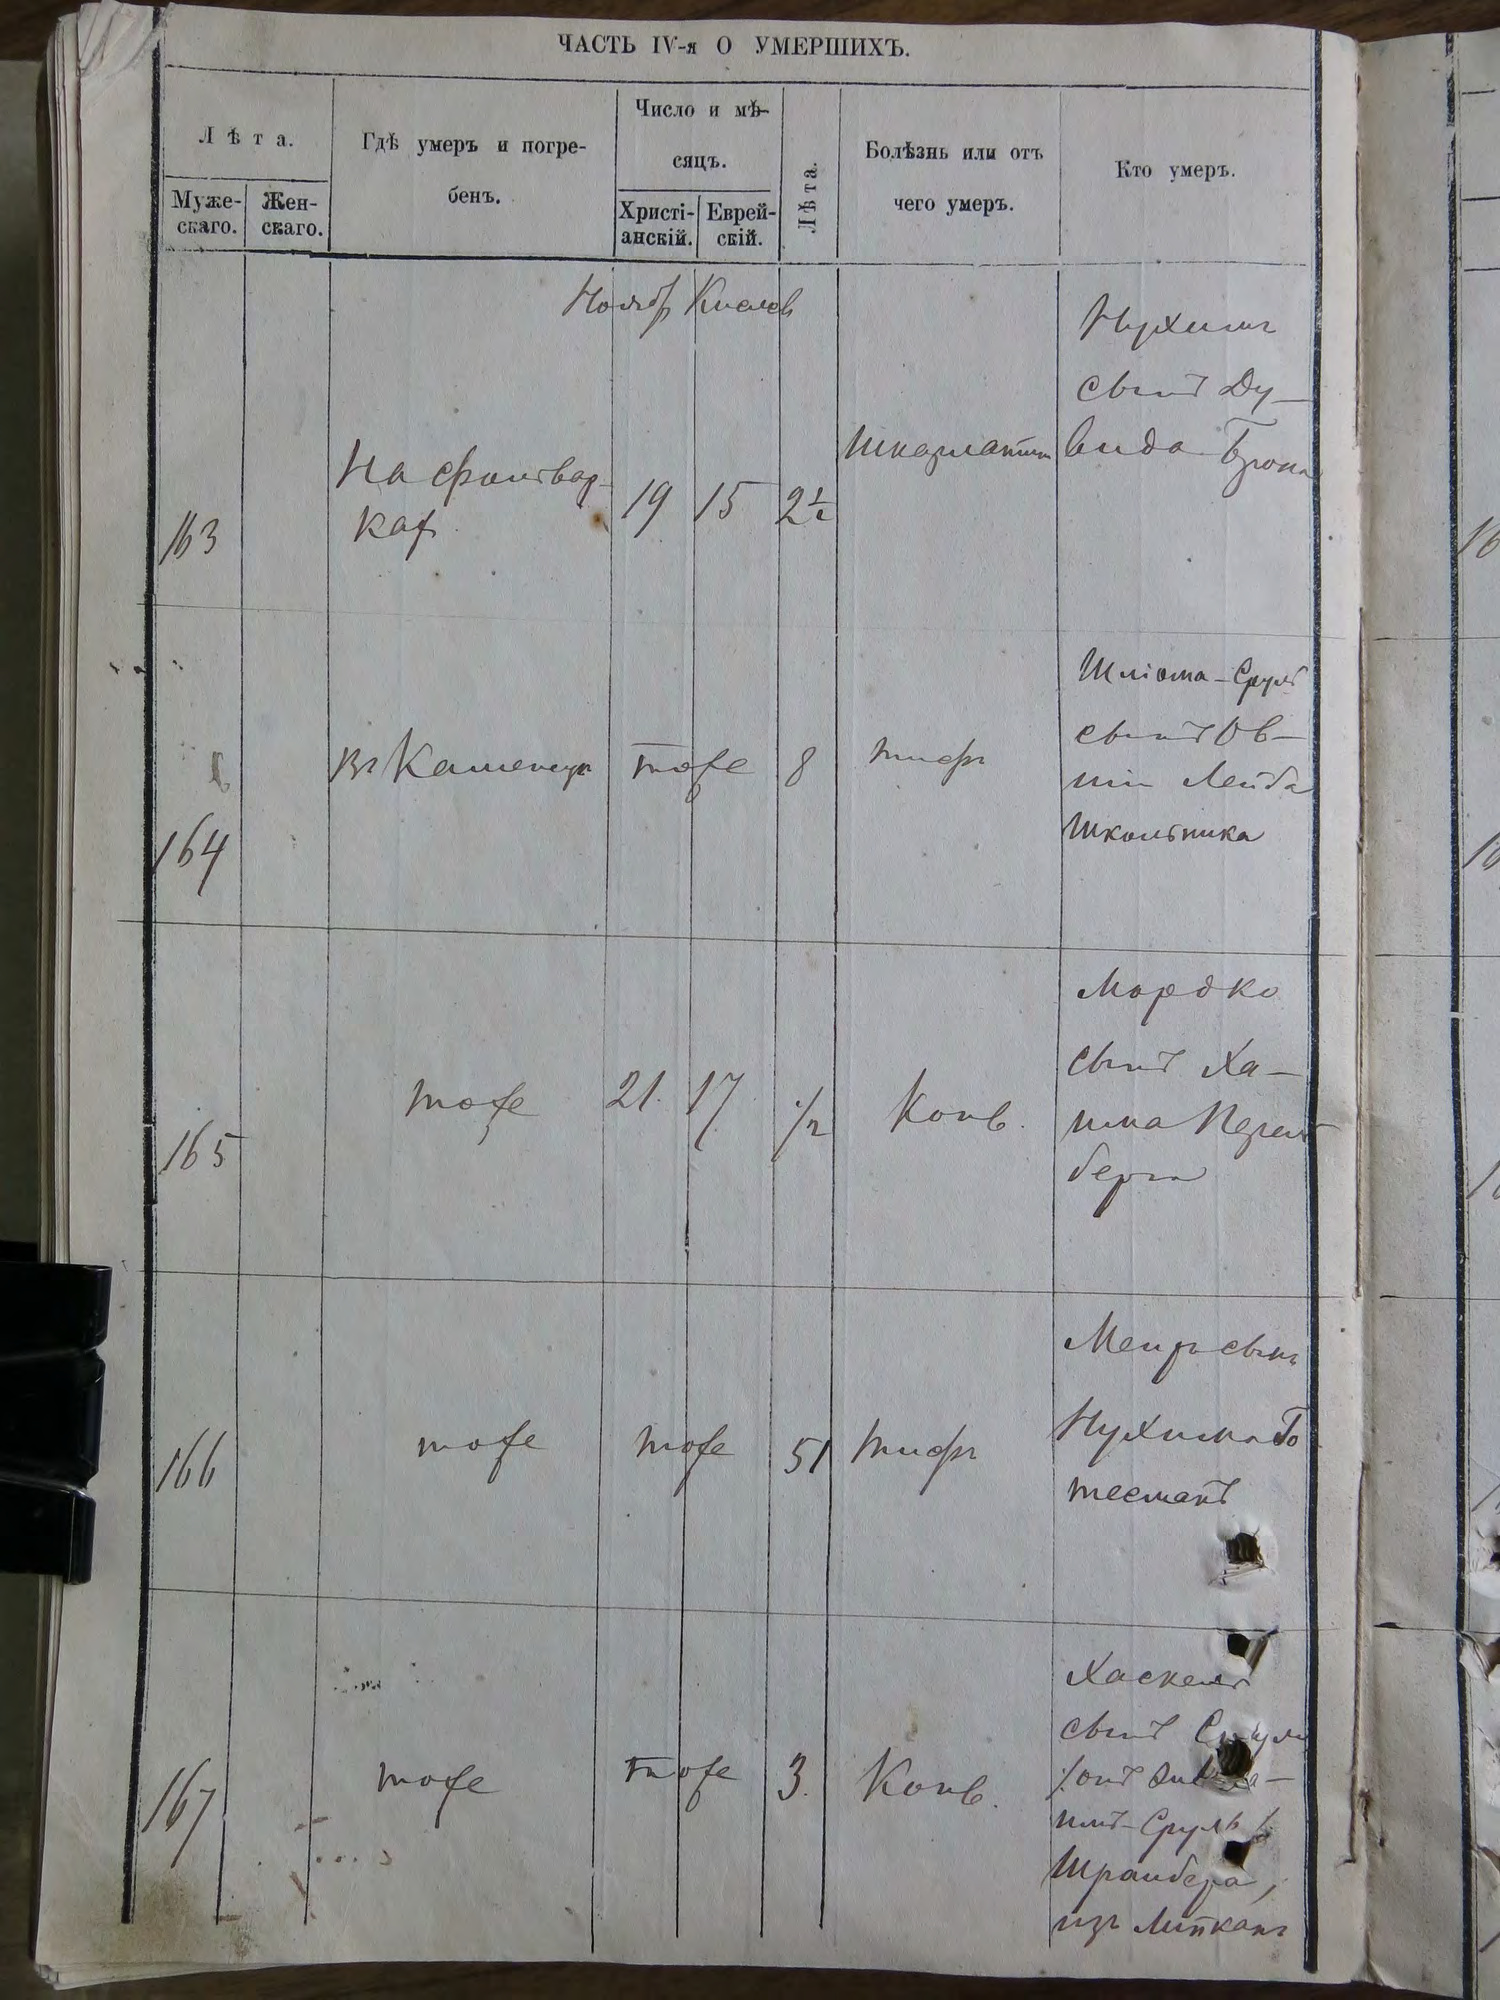 ЧАСТЬ IV-я О УМЕРШИХЪ.
Лѣта.
Муже-
скаго.
Жен-
скаго.
Гдѣ умеръ и погре-
бенъ.
Число и мѣ-
сяцъ.
Христі-
анскій.
Еврей-
скій.
Лѣта.
Болѣзнь или отъ
чего умеръ.
Кто умеръ.
Ноябр Кислев
163
На фольвар-
ках
19 15 2½
Шкарлатин
Нухимъ
сынъ Ду-
вида
164
Въ Каменцѣ
тоже
8
тифъ
Шліома-Сруль
сынъ Ов-
шіи Лейба
Школьника
165
тоже
21. 17 ½
Конв.
Мордко
сынъ Ха-
има Перель
берга
166
тоже
тоже
51
тифъ
Меиръ сынъ
Нухима Го
тесманъ
167
тоже
тоже
3.
Конв.
Хаскель
сынъ
онъ
Сруль
Шрайбера,
изъ Липканъ